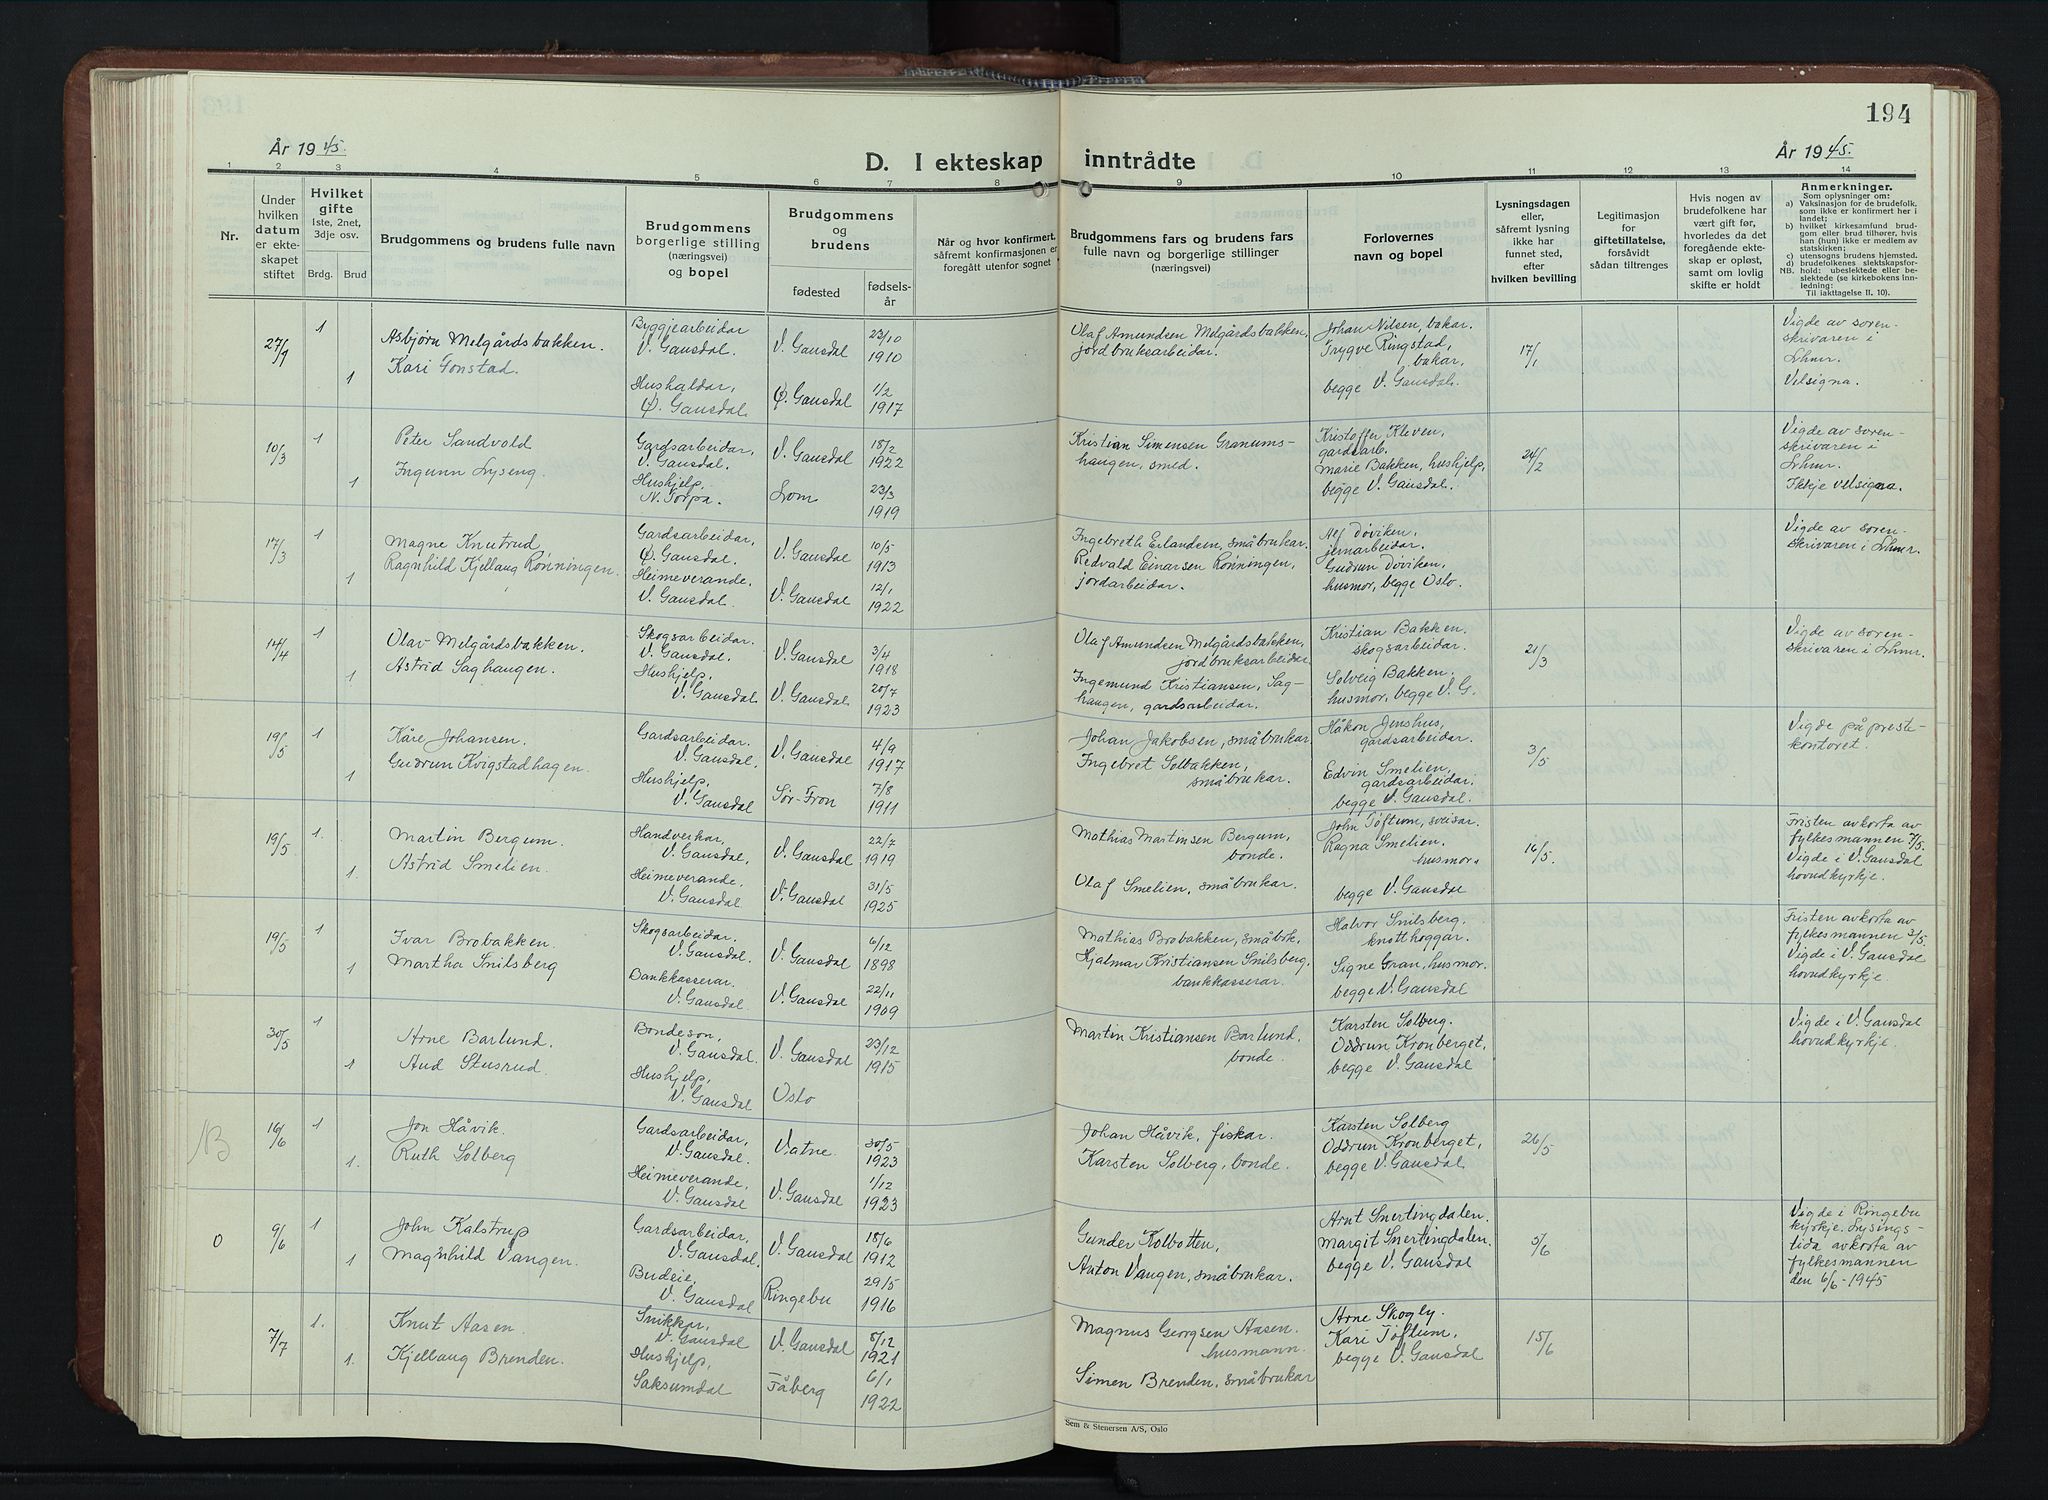 194
År 1945.
D. I ekteskap inntrådte
År 1945.
1 2 3 4 5 6 7 8 9 10 11 12 13 14
Nr.
Under hvilken datum er ekteskapet stiftet
Hvilket gifte
1ste, 2net, 3dje osv.
Brdg. Brud
Brudgommens og brudens fulle navn
Brudgommens borgerlige stilling (næringsvei) og bopel
Brudgommens og brudens
fødested
fødselsår
Når og hvor konfirmert, såfremt konfirmasjonen er foregått utenfor sognet
Brudgommens fars og brudens fars fulle navn og borgerlige stillinger (næringsvei)
Forlovernes navn og bopel
Lysningsdagen eller, såfremt lysning ikke har funnet sted, efter hvilken bevilling
Legitimasjon for giftetillatelse, forsåvidt sådan tiltrenges
Hvis nogen av brudefolkene har vært gift før, hvorledes da det foregående ekteskap er opløst, samt om lovlig skifte er holdt
Anmerkninger.
Som oplysninger om:
a) Vaksinasjon for de brudefolk, som ikke er konfirmert her i landet;
b) hvilket kirkesamfund brudgom eller brud tilhører, hvis han (hun) ikke er medlem av statskirken;
c) utensogns brudens hjemsted.
d) brudefolkenes slektskapsforhold: ubeslektede eller beslektede (se kirkebokens innledning:
NB.
Til iakttagelse II. 10).
27/1 1 Asbjørn Melgårdsbakken. Byggjearbeidar V. Gausdal. V. Gausdal 23/10 1910
1 Kari Gonstad. Hushaldar, Ø. Gausdal. Ø. Gausdal 1/2 1917
Olaf Amundsen Melgårdsbakken, jordbruksarbeidar.
Johan Nilsen, bakar. Trygve Ringstad, bakar, begge V. Gausdal.
17/1
Vigde av sorenskrivaren i Lhmr. Velsigna.
10/3 1 Peter Sandvold Gardsarbeidar, V. Gausdal. V. Gausdal 18/2 1922
1 Ingunn Lyseng. Hushjelp, N. Torpa. Lom 23/3 1919
Kristian Simensen Granumshaugen, smed.
Kristoffer Kleven, gardsarb. Marie Bakken, hushjelp, begge V. Gausdal.
24/2
Vigde av sorenskrivaren i Lhmr. Ikkje velsigna.
17/3 1 Magne Knutrud Gardsarbeidar, Ø. Gausdal. V. Gausdal 10/5 1913
1 Ragnhild Kjellaug Rønningen. Heimeverande. V. Gausdal. V. Gausdal 12/1 1922
Ingebreth Erlandsen, småbrukar. Redvald Einarsen Rønningen, jordarbeidar.
Alf Døviken, jernarbeidar. Gudrun Døviken, husmor, begge Oslo.
Vigde av sorenskrivaren i Lhmr.
14/4 1 Olav Melgårdsbakken. Skogsarbeidar. V. Gausdal. V. Gausdal 3/4 1918
1 Astrid Saghaugen. Hushjelp, V. Gausdal V. Gausdal 20/7 1923
Olaf Amundsen Melgårdsbakken, jordbruksarbeidar
Ingemund Kristiansen, Saghaugen, gardsarbeidar.
Kristian Bakken. skogsarbeidar. Solveig Bakken. husmor, begge V. G.
21/3
Vigde av sorenskrivaren i Lhmr.
19/5 1 Kåre Johansen. Gardsarbeidar. V. Gausdal. V. Gausdal 4/9 1917
1 Gudrun Kvigstadhagen. Hushjelp, V. Gausdal Sør-Fron 7/8 1911
Johan Jakobsen, småbrukar. Ingebret Solbakken, småbrukar.
Håkon Jenshus, gardsarbeidar. Edvin Smelien, gardsarbeidar, begge V. Gausdal.
3/5
Vigde på prestekontoret.
19/5 1. Martin Bergum. Handverkar, V. Gausdal, V. Gausdal 22/7 1919
1. Astrid Smelien. Heimeverande. V. Gausdal V. Gausdal 31/5 1925
Mathias Martinsen Bergum, bonde.
Olaf Smelien, småbrukar.
John Tøftum, sveisar. Ragna Smelien. husmor. begge V. Gausdal
16/5.
Fristen avkorta av fylkesmannen 7/5. Vigde i V. Gausdal hovudkyrkje.
19/5 1 Ivar Brobakken. Skogsarbeidar. V. Gausdal. V. Gausdal 6/12 1898
1 Martha Snilsberg Bankkasserar. V. Gausdal V. Gausdal 22/11 1909
Mathias Brobakken, småbrk. Hjalmar Kristiansen Snilsberg, bankkasserar.
Halvor Snilsberg. knotthoggar. Signe Gran, husmor. begge V. Gausdal
Fristen avkorta av fylkesmannen 3/5. Vigde i V. Gausdal hovudkyrkje.
30/5 1 Arne Barlund. Bondeson, V. Gausdal. V. Gausdal 23/12 1915
1 Aud Stusrud. Hushjelp, V. Gausdal Oslo
Martin Kristiansen Barlund. bonde.
Karsten Solberg. Oddrun Kronberget, begge V. Gausdal
Vigde i V. Gausdal hovudkyrkje.
NB 16/6 1 Jon Håvik. Gardsarbeidar, V. Gausdal. Vatne. 30/5 1923
1. Ruth Solberg Heimeverande, V. Gausdal V. Gausdal 1/12 1923
Johan Håvik, fiskar.
Karsten Solberg, bonde.
Karsten Solberg Oddrun Kronberget, begge V. Gausdal
26/5
O 9/6 1 John Kalstrup Gardsarbeidar, V. Gausdal. V. Gausdal 18/6 1912
1 Magnhild Vangen. Budeie, V. Gausdal Ringebu 29/5 1916
Gunder Kolbotten,
Anton Vangen, småbrukar.
Arnt Snertingdalen. Margit Snertingdalen. begge V. Gausdal
5/6
Vigde i Ringebu kyrkje. Lysingstida avkorta av fylkesmannen den 6/6-1945
7/7 1. Knut Aasen. Snikkar, V. Gausdal V. Gausdal 8/12 1921
1. Kjellaug Brenden. Hushjelp, Saksumdal Fåberg 6/1 1922
Magnus Georgsen Aasen. husmann.
Simen Brenden, småbrukar
Arne Skogly. Kari Tøftum, begge V. Gausdal
15/6
Sem & Stenersen A/S, Oslo